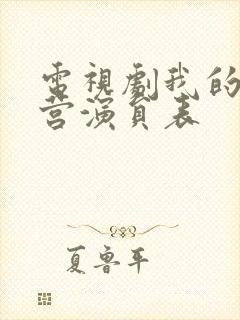 電視劇我的
營演員表
夏魯平